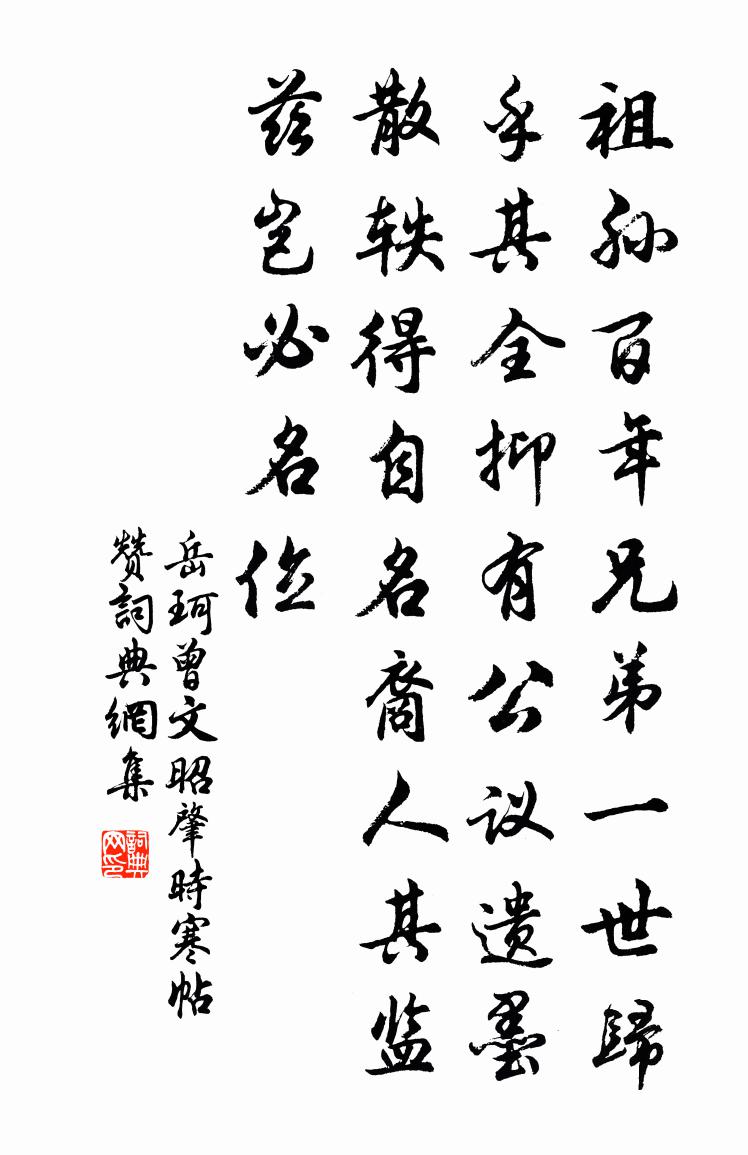 祖孙百年兄弟一世歸
乎其全抑有公议遗墨
散轶得自名裔人其监
茲岂必名位
岳珂曾文昭肇時寒帖
赞詞典網集
詞典网印